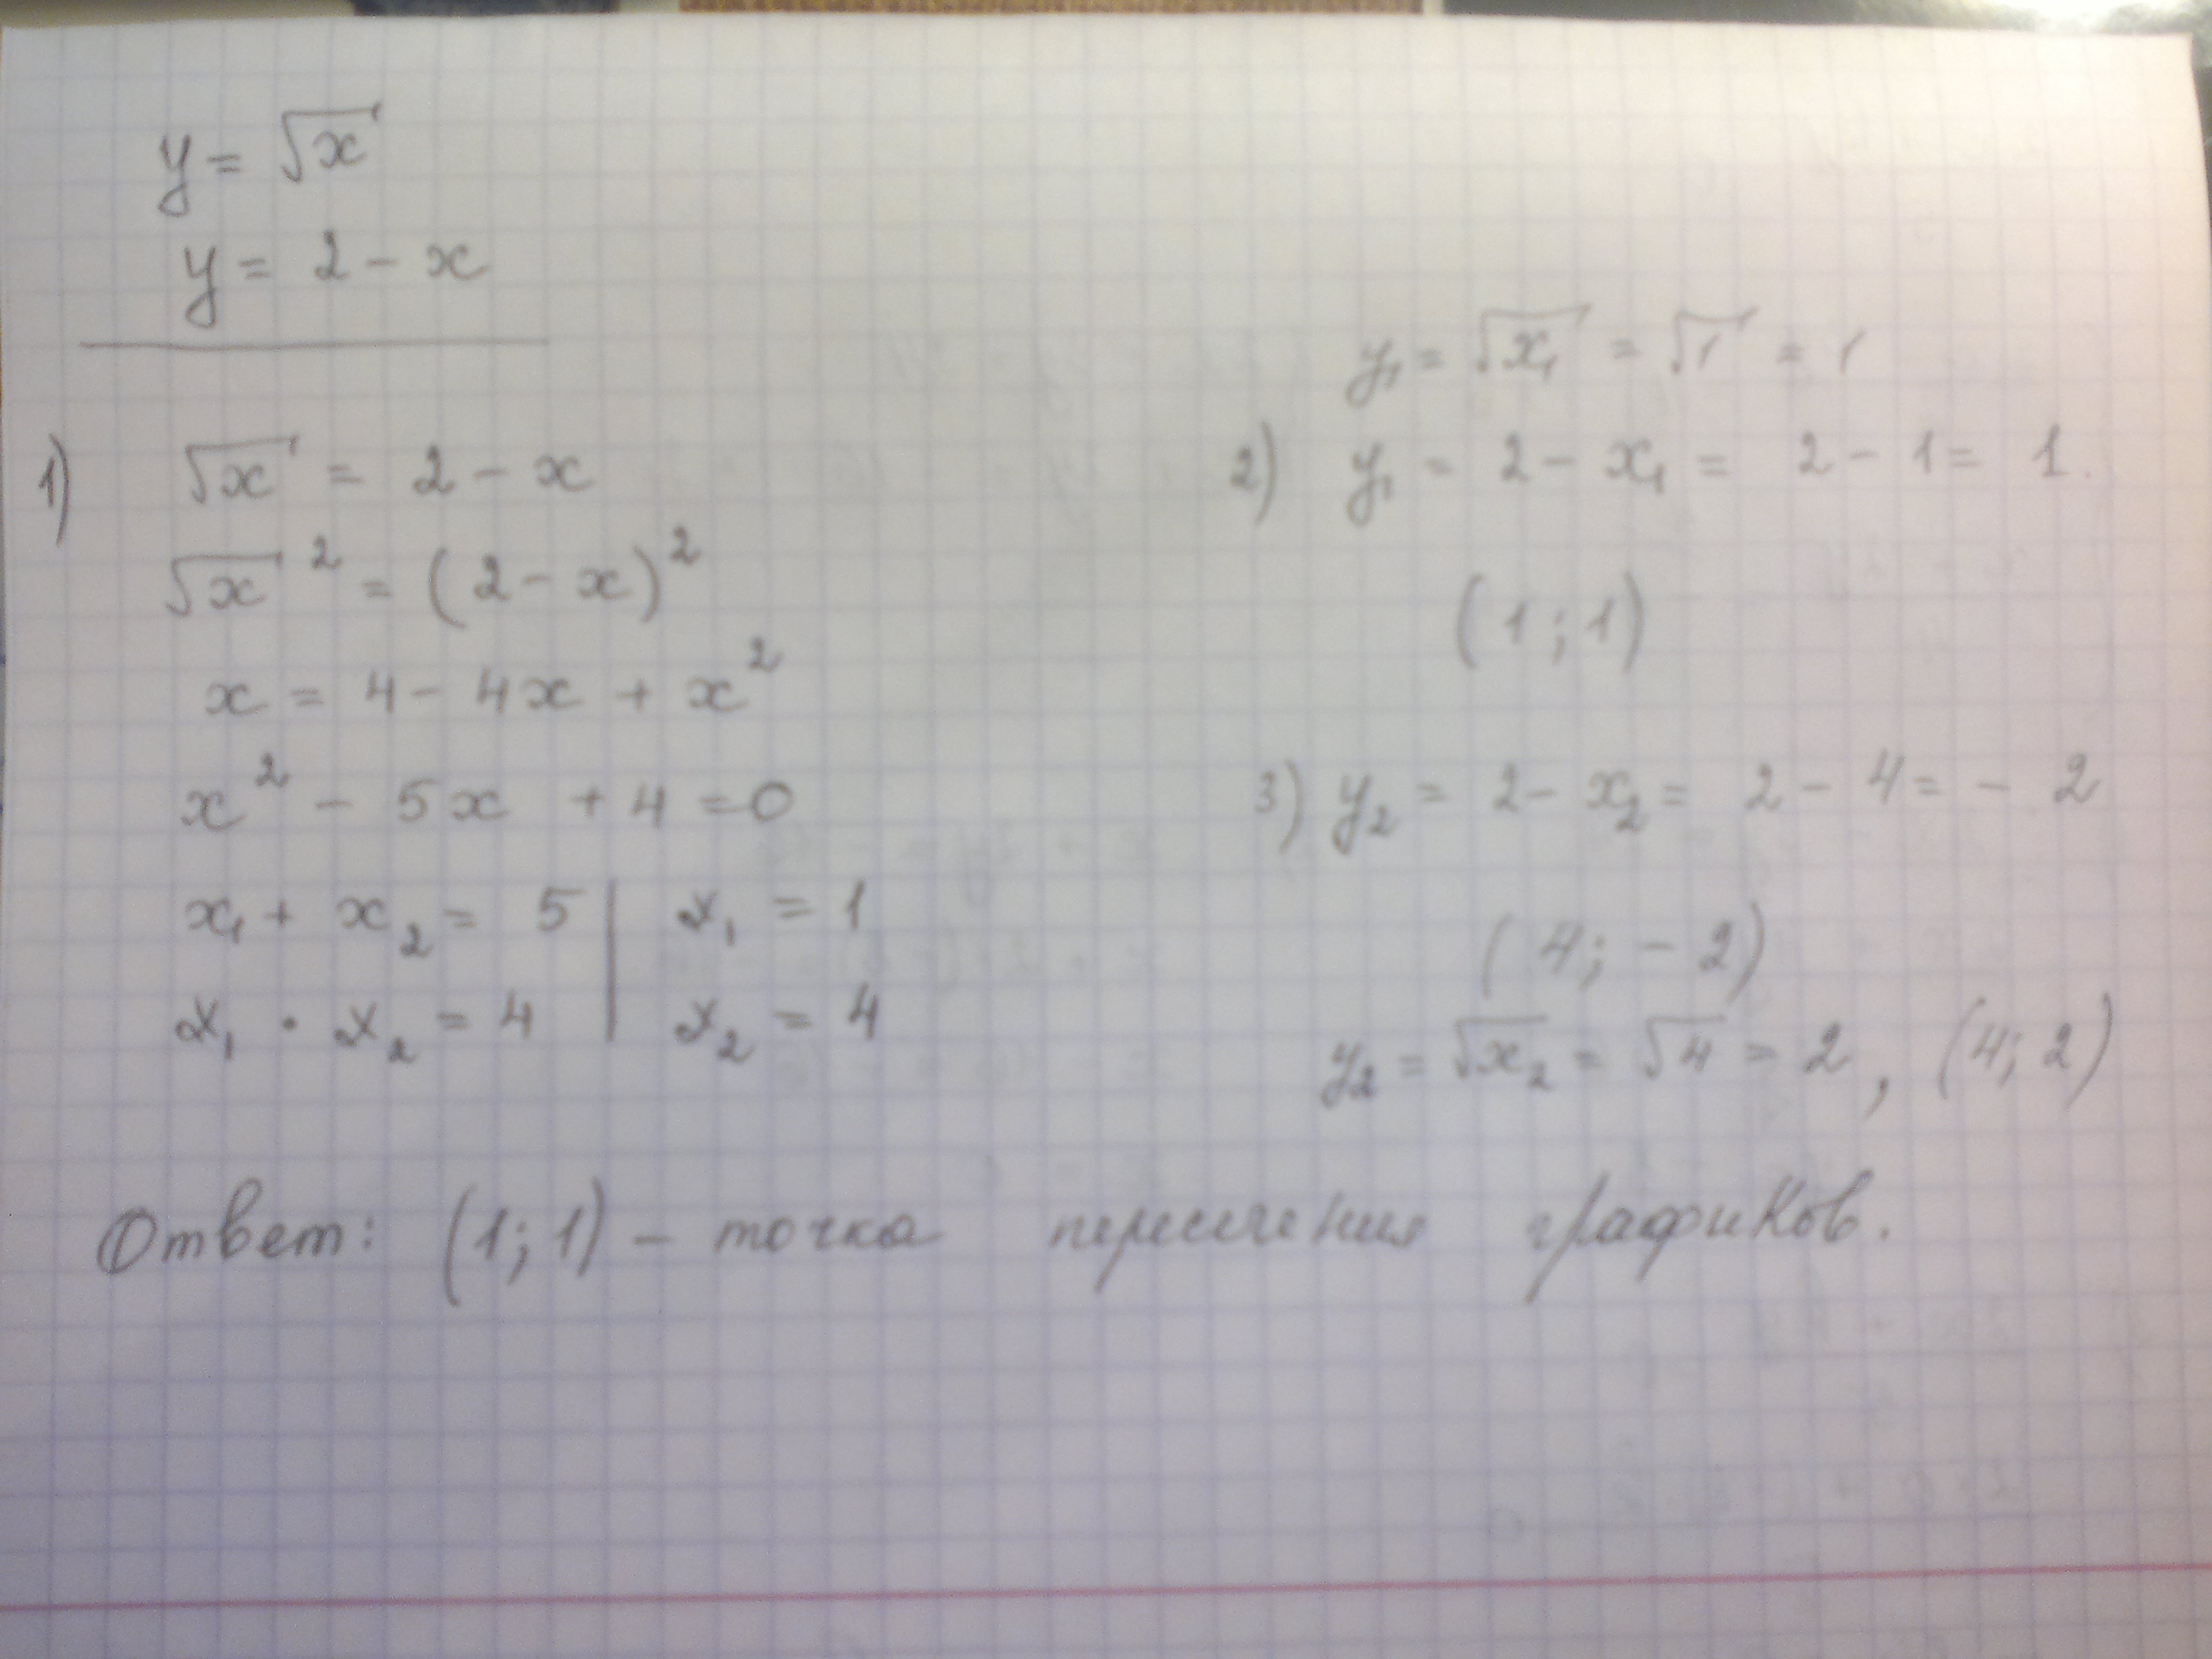 y = √x
y = 2 - x
1) √x = 2 - x
√x ² = (2 - x)²
x = 4 - 4x + x²
x² - 5x + 4 = 0
x₁ + x₂ = 5 | x₁ = 1
x₁ · x₂ = 4 | x₂ = 4
y₁ = √x₁ = √1 = 1
2) y₁ = 2 - x₁ = 2 - 1 = 1.
(1; 1)
3) y₂ = 2 - x₂ = 2 - 4 = - 2
(4; - 2)
y₂ = √x₂ = √4 = 2, (4; 2)
Ответ: (1; 1) - точка пересечения графиков.